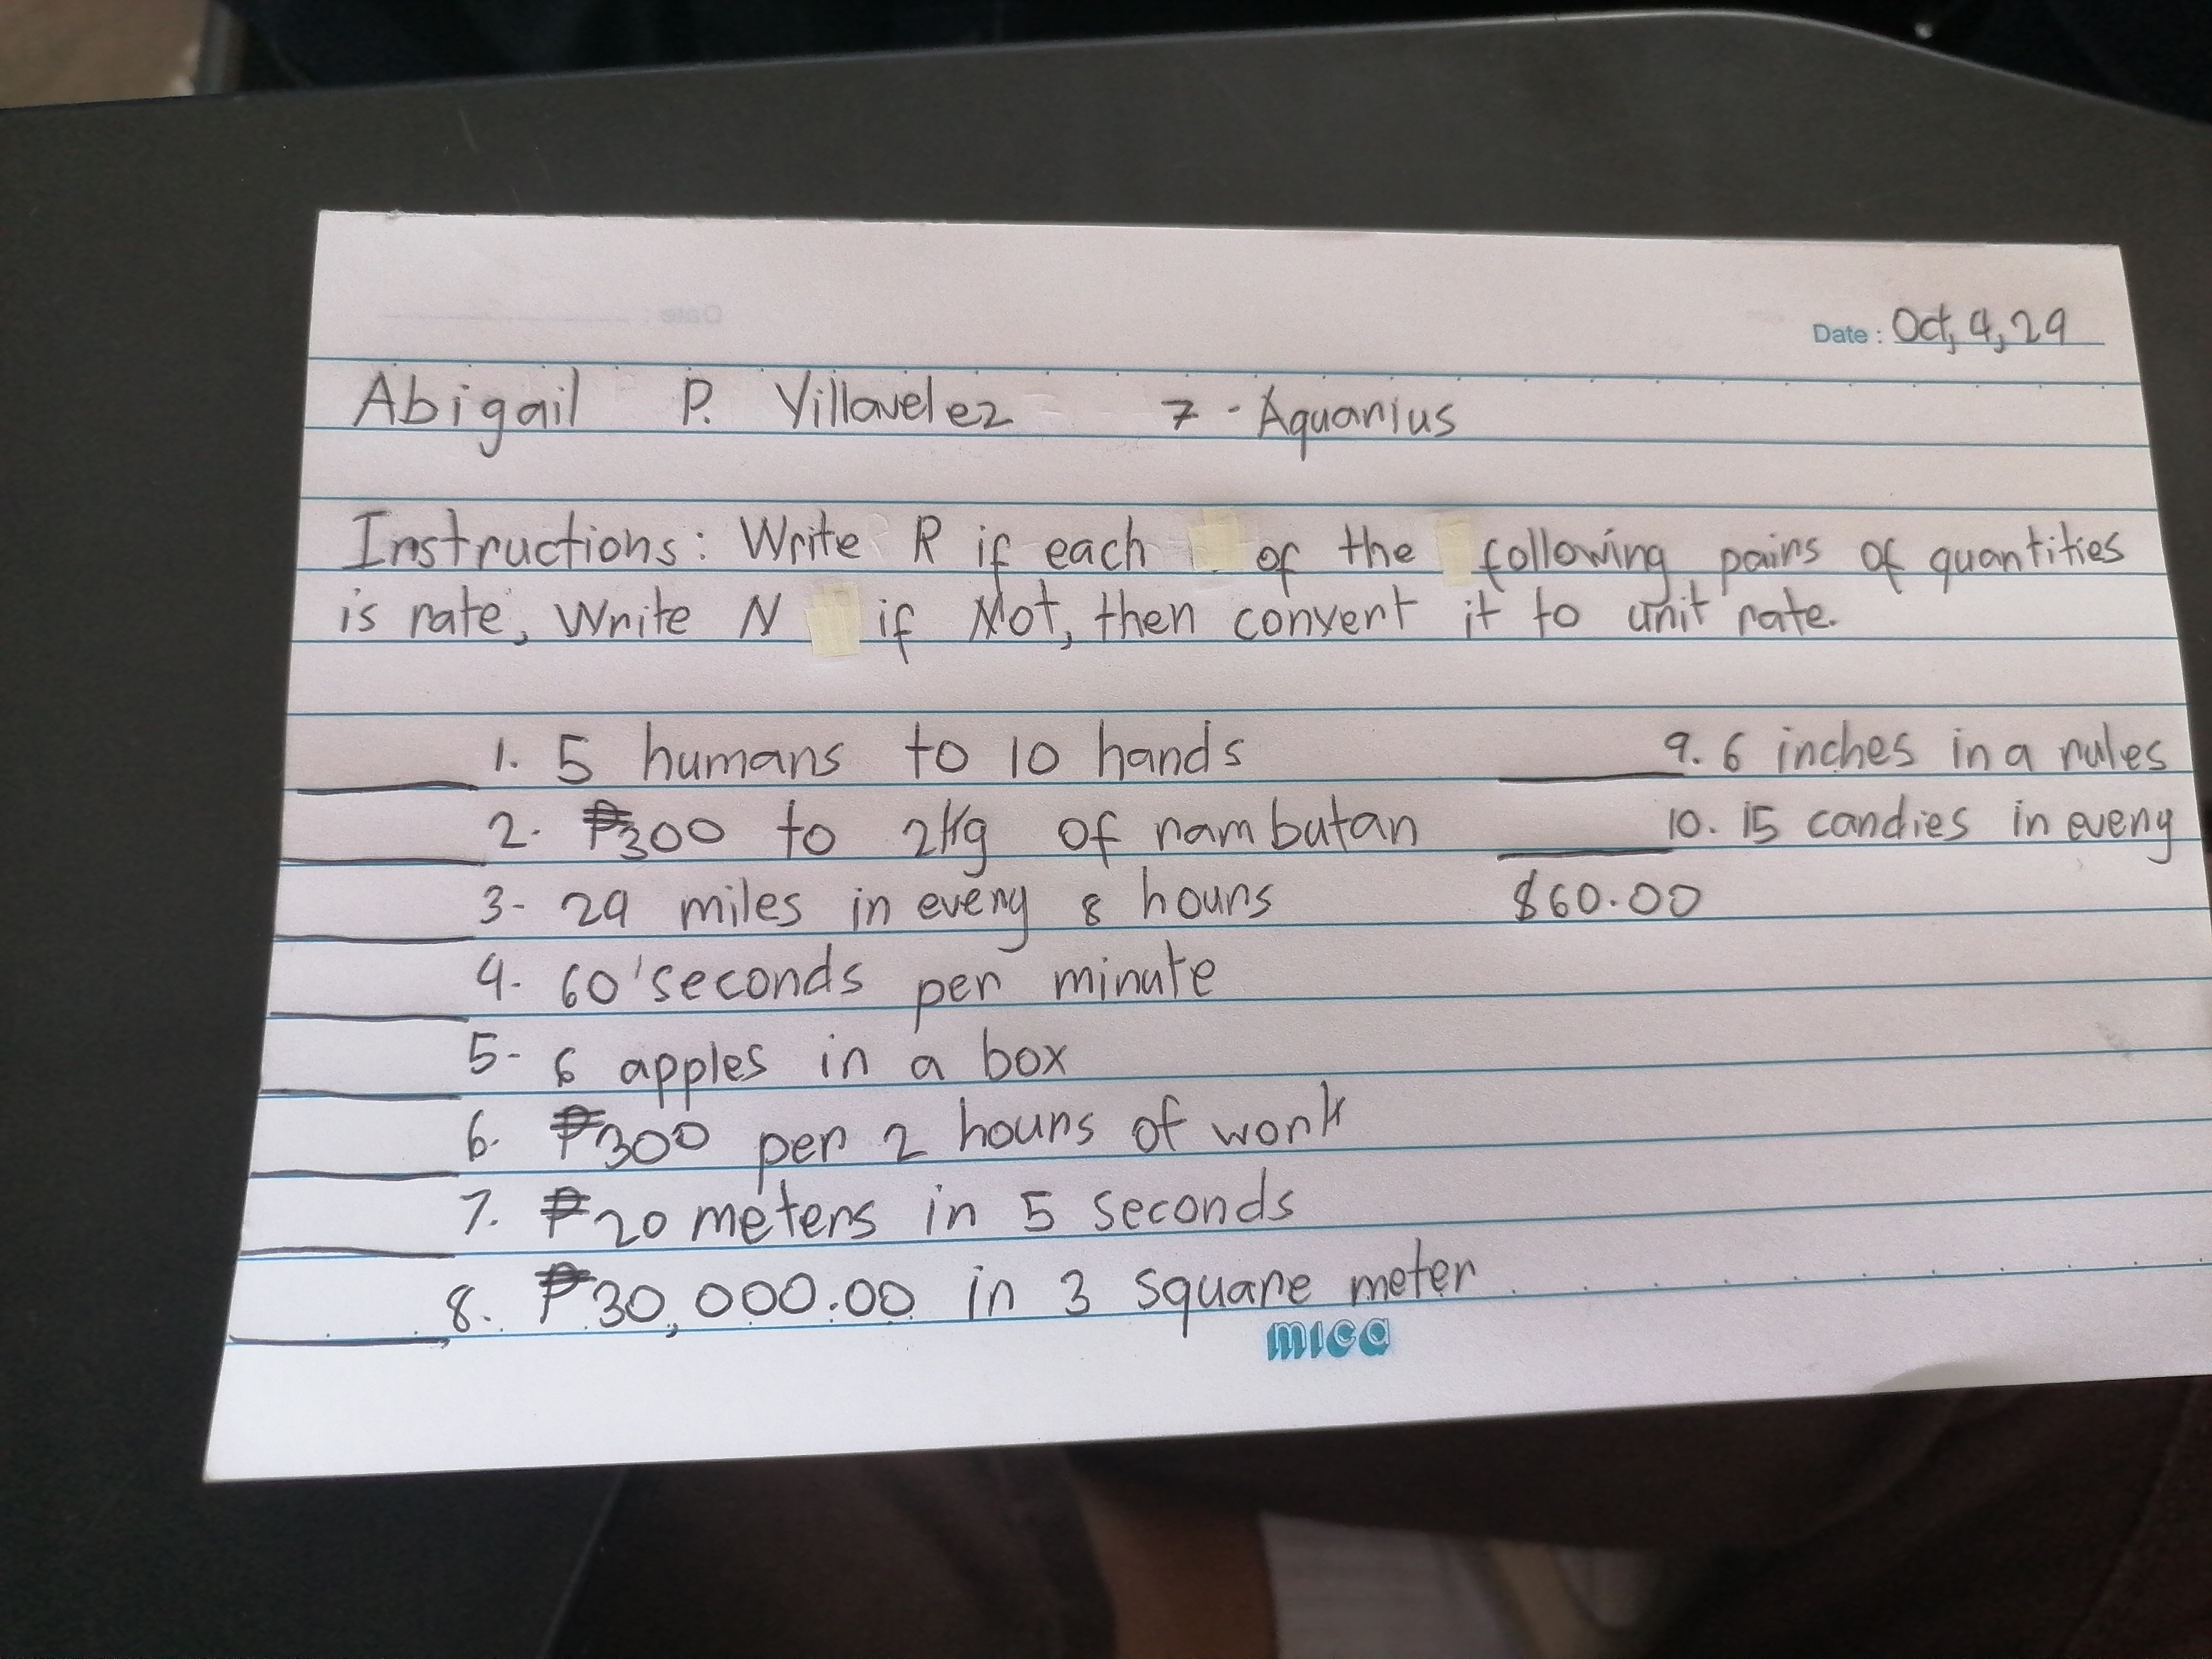 Date : Oct, 4, 29
Abigail P. Villavelez 7 - Aquarius
Instructions: Write R if each of the following pairs of quantities
is rate, Write N if Not, then convert it to unit rate.
1. 5 humans to 10 hands
2. ₱300 to 2kg of rambutan
3- 29 miles in every 8 hours
4. 60 seconds per minute
5- 6 apples in a box
6. ₱300 per 2 hours of work
7. ₱20 meters in 5 seconds
8. ₱30,000.00 in 3 square meter
9. 6 inches in a rules
10. 15 candies in every
$60.00
mica